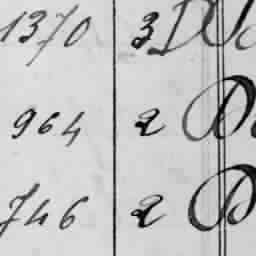 1370 3
964 2
746 2